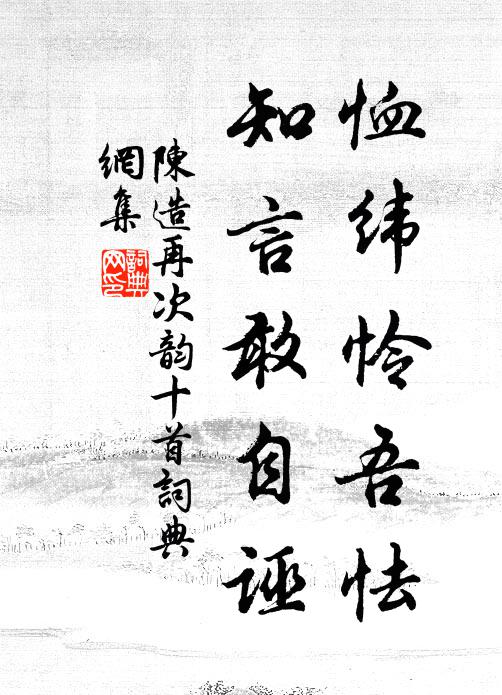 恤纬怜吾怯
知言敢自诬
陳造再次韵十首詞典
網集
詞典
网印